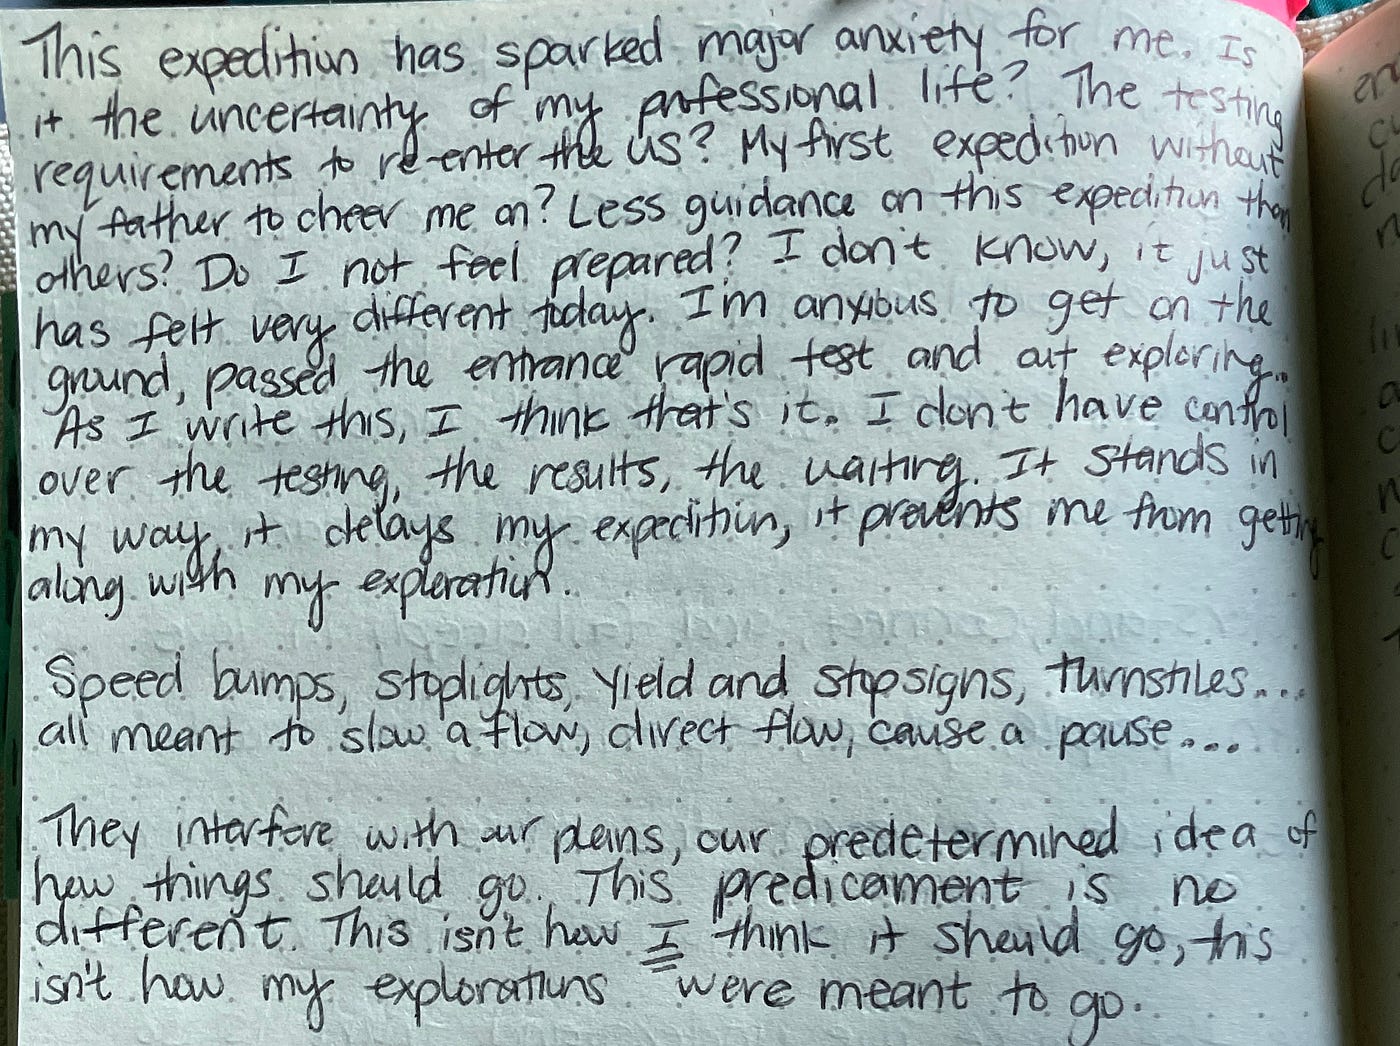 This expedition has sparked major anxiety for me. Is
it the uncertainty of my professional life? The testing
requirements to re-enter the US? My first expedition without
my father to cheer me on? Less guidance on this expedition than
others? Do I not feel prepared? I don't know, it just
has felt very different today. I'm anxious to get on the
ground, passed the entrance rapid test and out exploring..
As I write this, I think that's it. I don't have control
over the testing, the results, the waiting. It stands in
my way, it delays my expedition, it prevents me from getting
along with my exploration.
Speed bumps, stoplights, yield and stop signs, turnstiles...
all meant to slow a flow, direct flow, cause a pause....
They interfere with our plans, our predetermined idea of
how things should go. This predicament is no
different. This isn't how I think it should go, this
isn't how my explorations were meant to go.